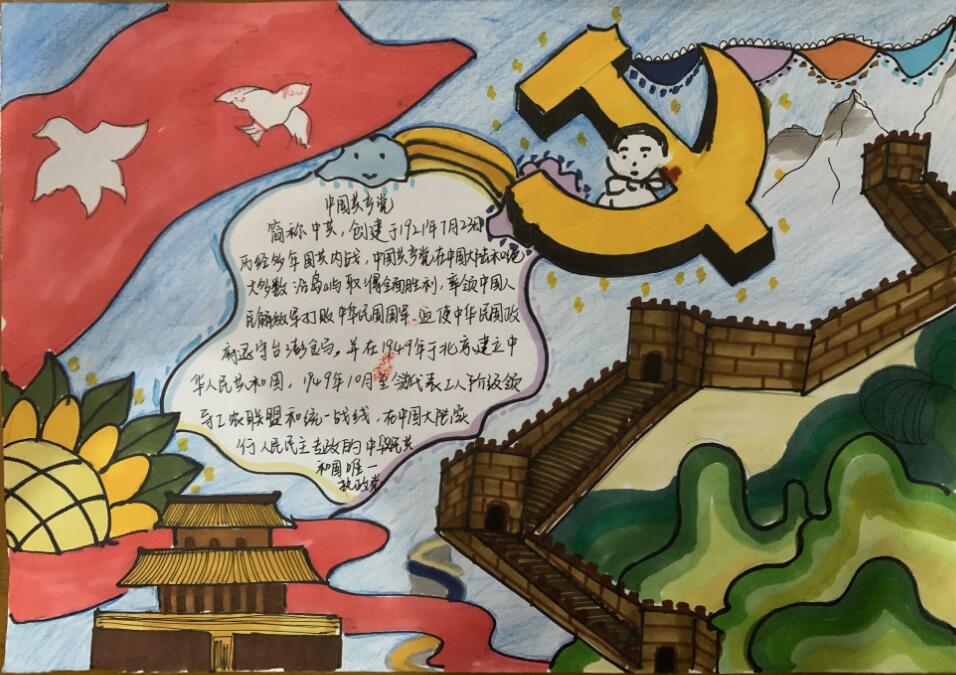 中国共产党
简称中共，创建于1921年7月23日
历经多年国共内战，中国共产党在中国大陆和绝
大多数沿岛屿取得全面胜利，率领中国人
民解放军打败中华民国国军，迫使中华民国政
府退守台澎金马，并在1949年于北京建立中
华人民共和国，1949年10月至今代表工人阶级领
导工农联盟和统一战线，在中国大陆实
行人民民主专政的中华民共
和国唯一
执政党